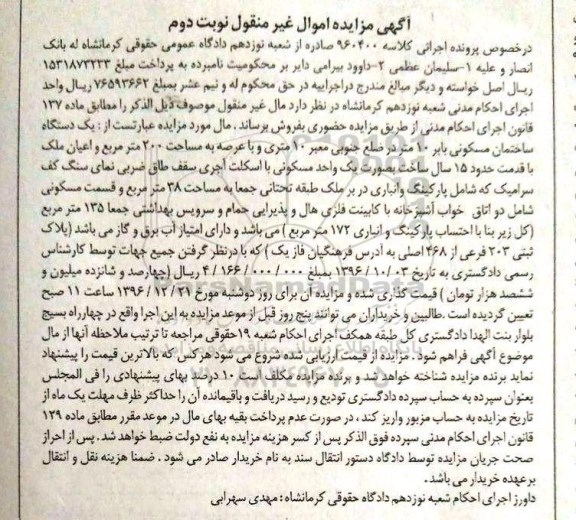 آگهی مزایده اموال غیر منقول نوبت دوم
درخصوص پرونده اجرائی کلاسه ۹۶۰۴۰۰ صادره از شعبه نوزدهم دادگاه عمومی حقوقی کرمانشاه له بانک
انصار و علیه ۱-سلیمان عظمی ۲-داوود بیرامی دایر بر محکومیت نامبرده به پرداخت مبلغ ۱۵۳۱۸۷۳۲۲۳
ریال اصل خواسته و دیگر مبالغ مندرج دراجراییه در حق محکوم له و نیم عشر بمبلغ ۷۶۵۹۳۶۶۲ ریال واحد
اجرای احکام مدنی شعبه نوزدهم کرمانشاه در نظر دارد مال غیر منقول موصوف ذیل الذکر را مطابق ماده ۱۳۷
قانون اجرای احکام مدنی از طریق مزایده حضوری بفروش برساند . مال مورد مزایده عبارتست از : یک دستگاه
ساختمان مسکونی بابر ۱۰ متر در ضلع جنوبی معبر ۱۰ متری و با عرصه به مساحت ۲۰۰ متر مربع و اعیان ملک
با قدمت حدود ۱۵ سال ساخت بصورت یک واحد مسکونی با اسکلت آجری سقف طاق ضربی نمای سنگ کف
سرامیک که شامل پارکینگ وانباری در بر ملک طبقه تحتانی جمعا به مساحت ۳۸ متر مربع و قسمت مسکونی
شامل دو اتاق خواب آشپزخانه با کابینت فلزی هال و پذیرایی حمام و سرویس بهداشتی جمعا ۱۳۵ متر مربع
(کل زیر بنا با احتساب پارکینگ و انباری ۱۷۲ متر مربع ) می باشد و دارای امتیاز آب برق و گاز می باشد (پلاک
ثبتی ۲۰۳ فرعی از ۴۶۸ اصلی به آدرس فرهنگیان فاز یک ) که با درنظر گرفتن جمیع جهات توسط کارشناس
رسمی دادگستری به تاریخ ۰۳ / ۱۰ / ۱۳۹۶ بمبلغ ۰۰۰ / ۰۰۰ / ۱۶۶ / ۴ ریال (چهارصد و شانزده میلیون و
ششصد هزار تومان ) قیمت گذاری شده و مزایده آن برای روز دوشنبه مورخ ۲۱ / ۱۲ / ۱۳۹۶ ساعت ۱۱ صبح
تعیین گردیده است .طالبین و خریداران می توانند پنج روز قبل از موعد مزایده به این اجرا واقع در چهارراه بسیج
بلوار بنت الهدا دادگستری کل طبقه همکف اجرای احکام شعبه ۱۹حقوقی مراجعه تا ترتیب ملاحظه آنها از مال
موضوع آگهی فراهم شود . مزایده از قیمت ارزیابی شده شروع می شود هر کس که بالاترین قیمت را پیشنهاد
نماید برنده مزایده شناخته خواهد شد و برنده مزایده مکلف است ۱۰ درصد بهای پیشنهادی را فی المجلس
بعنوان سپرده به حساب سپرده دادگستری تودیع و رسید دریافت و باقیمانده آن را حداکثر ظرف مهلت یک ماه از
تاریخ مزایده به حساب مزبور واریز کند ، در صورت عدم پرداخت بقیه بهای مال در موعد مقرر مطابق ماده ۱۲۹
قانون اجرای احکام مدنی سپرده فوق الذکر پس از کسر هزینه مزایده به نفع دولت ضبط خواهد شد . پس از احراز
صحت جریان مزایده توسط دادگاه دستور انتقال سند به نام خریدار صادر می شود . ضمنا هزینه نقل و انتقال
برعهده خریدار می باشد .
داورز اجرای احکام شعبه نوزدهم دادگاه حقوقی کرمانشاه : مهدی سهرابی
ParsNamadData